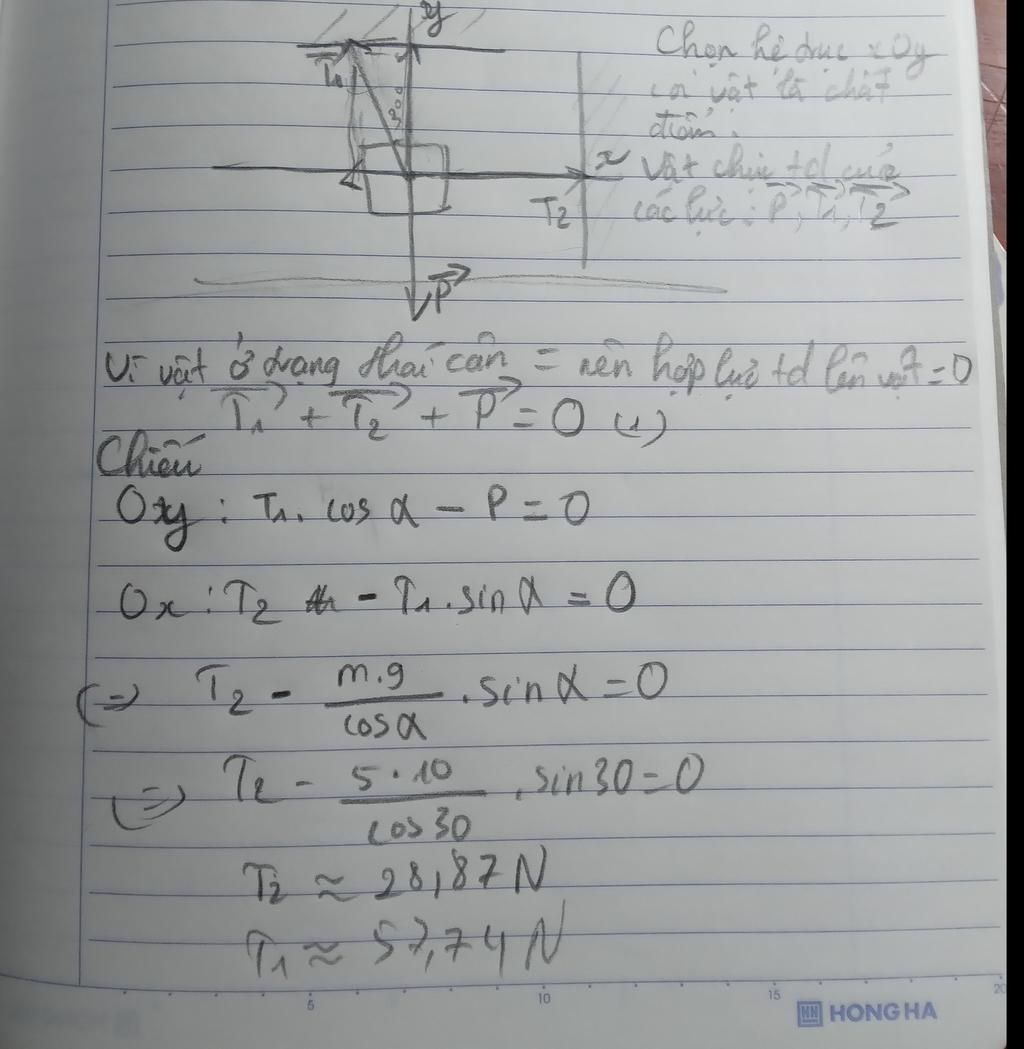 y
Chọn hệ trục xOy
coi vật là chất
điểm.
T₁
30°
x
Vật chịu td của
các lực : P, T₁, T₂
T₂
P
Vì vật ở trạng thái cân = nên hợp lực td lên vật = 0
T₁ + T₂ + P = 0 (1)
Chiếu
Oxy : T₁. cos α - P = 0
Ox : T₂ - T₁ . sin α = 0
(=) T₂ - m.g / cosα . sin α = 0
(=) T₂ - 5.10 / cos 30 . sin 30 = 0
T₂ ≈ 28,87 N
T₁ ≈ 57,74 N
5 10 15 20
HH HONG HA